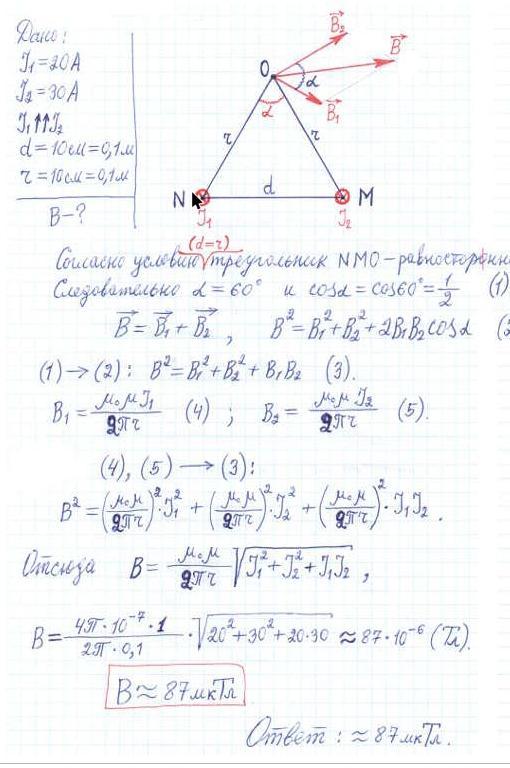 Дано:
I₁=20А
I₂=30А
I₁⇈I₂
d=10см=0,1м
r=10см=0,1м
B-?
B₂
B
O
α
α
B₁
r
r
N
d
M
I₁
I₂
(d=r)
Согласно условию √ треугольник NMO-равносторонн
Следовательно α=60° и cosα=cos60°=1/2 (1)
B⃗=B⃗₁+B⃗₂, B²=B₁²+B₂²+2B₁B₂cosα (2
(1)→(2): B²=B₁²+B₂²+B₁B₂ (3).
B₁=μ₀μI₁/2πr (4) ; B₂=μ₀μI₂/2πr (5).
(4), (5) → (3):
B²=(μ₀μ/2πr)²·I₁²+(μ₀μ/2πr)²·I₂²+(μ₀μ/2πr)²·I₁I₂.
Отсюда B=μ₀μ/2πr √(I₁²+I₂²+I₁I₂),
B=4π·10⁻⁷·1/2π·0,1·√(20²+30²+20·30)≈87·10⁻⁶(Тл).
B≈87мкТл
Ответ: ≈87мкТл.